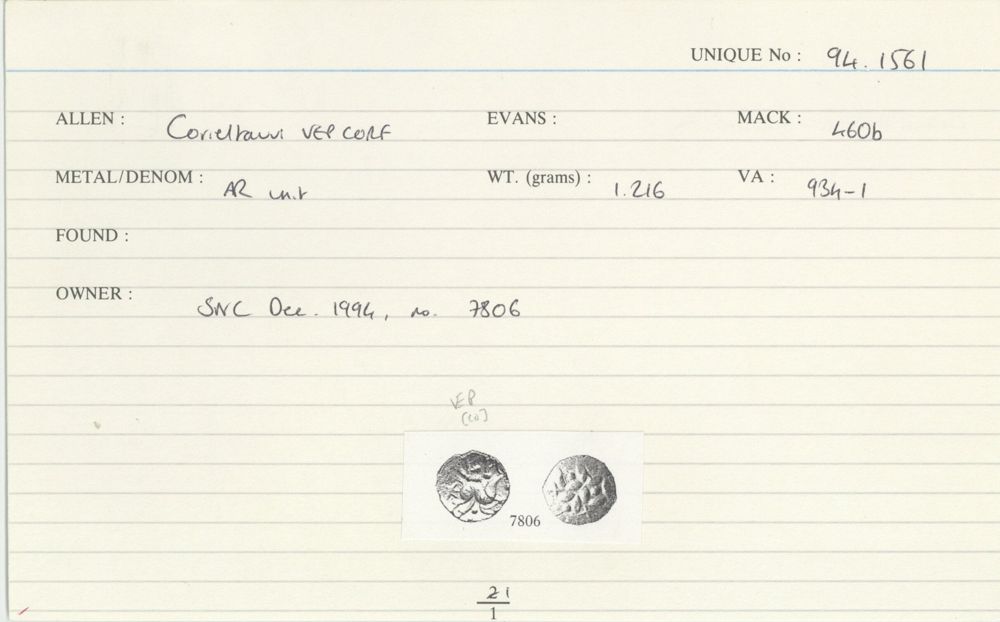 UNIQUE No : 94.1561
ALLEN : Corieltauvi VEP CORF EVANS : MACK : 460b
METAL/DENOM : AR unit WT. (grams) : 1.216 VA : 934-1
FOUND :
OWNER : SNC Dec. 1994, no. 7806
VEP
[CO]
7806
21
1